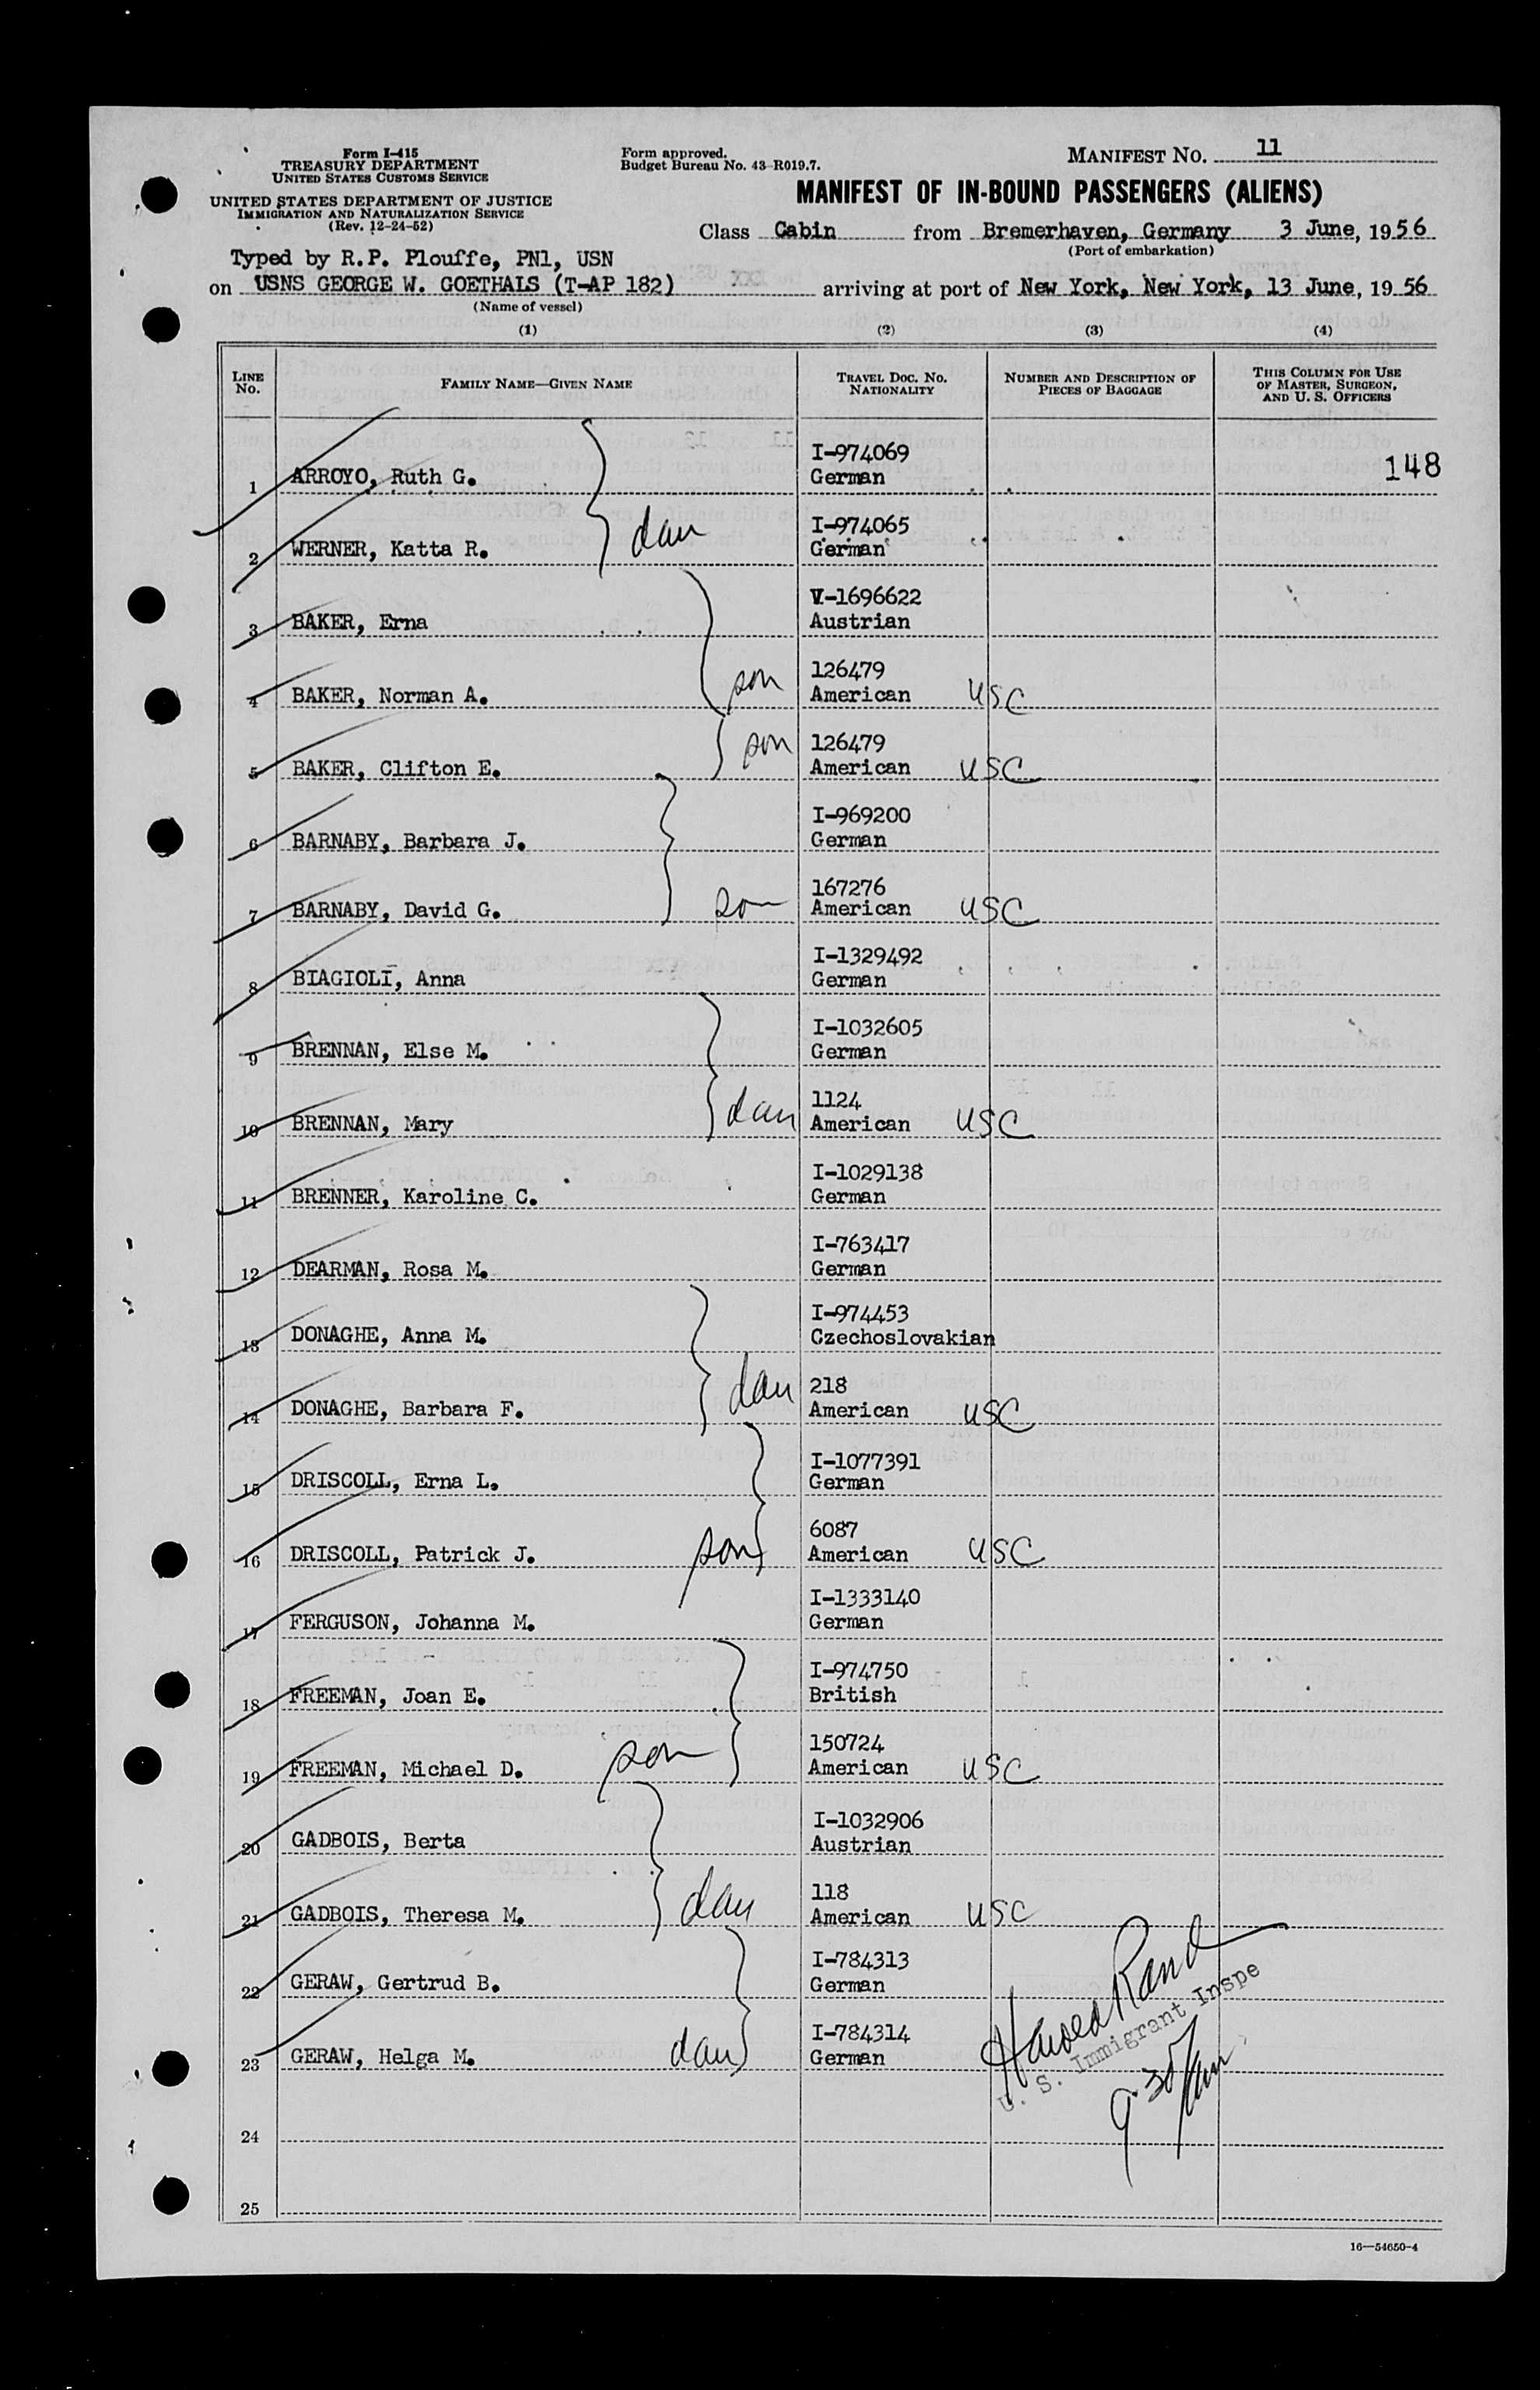 Form I-415
TREASURY DEPARTMENT
UNITED STATES CUSTOMS SERVICE
UNITED STATES DEPARTMENT OF JUSTICE
IMMIGRATION AND NATURALIZATION SERVICE
(Rev. 12-24-52)
Form approved.
Budget Bureau No. 43-R019.7.
MANIFEST NO. 11
MANIFEST OF IN-BOUND PASSENGERS (ALIENS)
Class Cabin from Bremerhaven, Germany 3 June, 1956
(Port of embarkation)
Typed by R.P. Plouffe, PN1, USN
on USNS GEORGE W. GOETHALS (T-AP 182) arriving at port of New York, New York, 13 June, 1956
(Name of vessel)
(1) (2) (3) (4)
LINE No. FAMILY NAME—GIVEN NAME TRAVEL DOC. NO. NATIONALITY NUMBER AND DESCRIPTION OF PIECES OF BAGGAGE THIS COLUMN FOR USE OF MASTER, SURGEON, AND U. S. OFFICERS
148
I-974069
1 ARROYO, Ruth G. German
I-974065
2 WERNER, Katta R. dau German
V-1696622
3 BAKER, Erna Austrian
126479
4 BAKER, Norman A. son American USC
126479
5 BAKER, Clifton E. son American USC
I-969200
6 BARNABY, Barbara J. German
167276
7 BARNABY, David G. son American USC
I-1329492
8 BIAGIOLI, Anna German
I-1032605
9 BRENNAN, Else M. German
1124
10 BRENNAN, Mary dau American USC
I-1029138
11 BRENNER, Karoline C. German
I-763417
12 DEARMAN, Rosa M. German
I-974453
13 DONAGHE, Anna M. Czechoslovakian
218
14 DONAGHE, Barbara F. dau American USC
I-1077391
15 DRISCOLL, Erna L. German
6087
16 DRISCOLL, Patrick J. son American USC
I-1333140
17 FERGUSON, Johanna M. German
I-974750
18 FREEMAN, Joan E. British
150724
19 FREEMAN, Michael D. son American USC
I-1032906
20 GADBOIS, Berta Austrian
118
21 GADBOIS, Theresa M. dau American USC
I-784313
22 GERAW, Gertrud B. German
I-784314
23 GERAW, Helga M. dau German
Harold Rand
U. S. Immigrant Inspe
9:30 am
24
25
16—54650-4